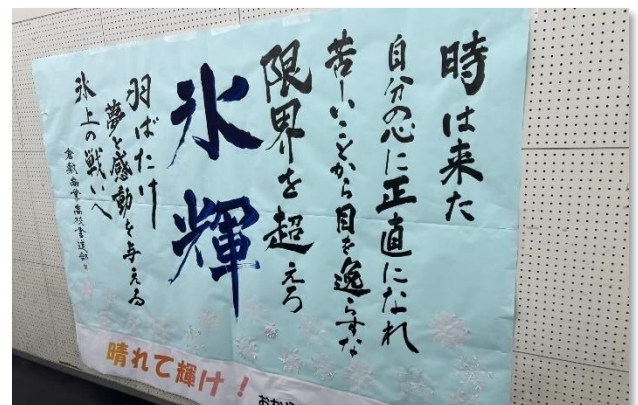 時は来た
自分の心に正直になれ
苦しいことから目を逸らすな
限界を超えろ
氷輝
羽ばたけ
夢と感動を与える
氷上の戦いへ
倉敷商業高校書道部
晴れて輝け！
おか